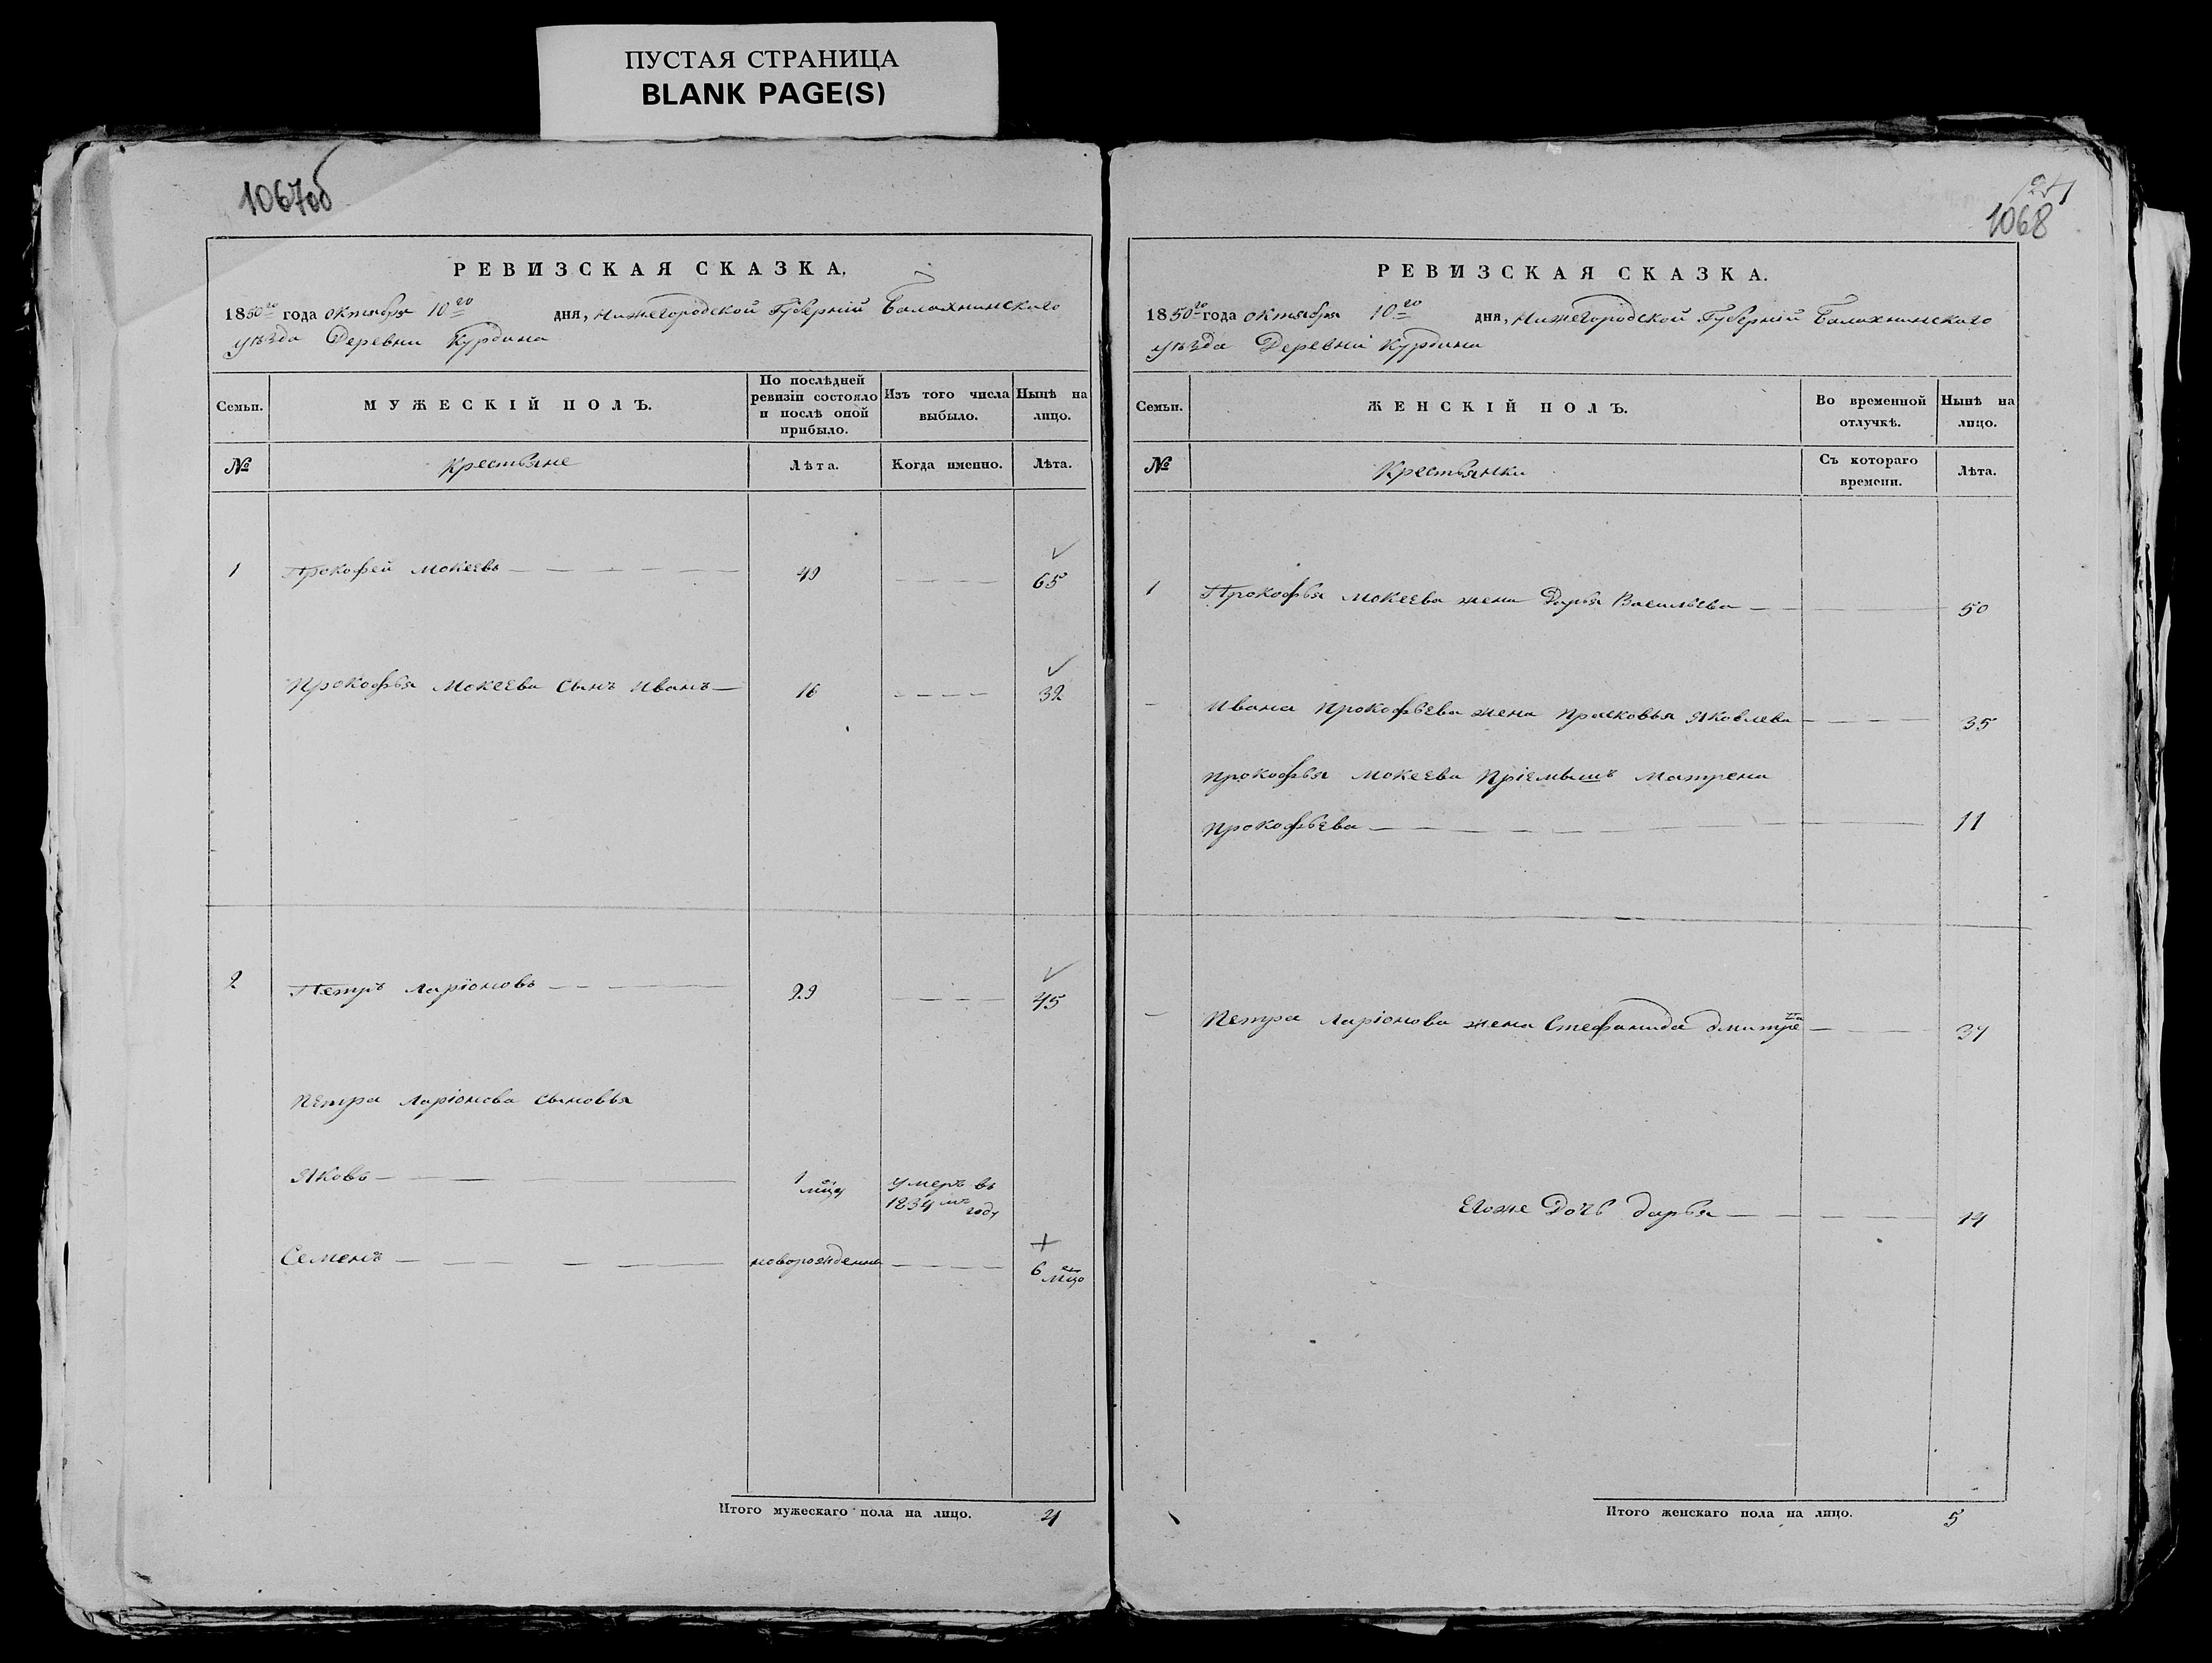 ПУСТАЯ СТРАНИЦА
BLANK PAGE(S)
1067об
РЕВИЗСКАЯ СКАЗКА.
1850го года октября 10го дня, Нижегородской Губерніи Балахнинскаго
уѣзда Деревни Курдина
Семьи.
МУЖЕСКІЙ ПОЛЪ.
По послѣдней ревизіи состояло и послѣ оной прибыло.
Изъ того числа выбыло.
Нынѣ на лицо.
№
Крестьяне
Лѣта.
Когда именно.
Лѣта.
1 Прокофей Мокеевъ 49 65
Прокофья Мокеева сынъ Иванъ 16 32
2 Петръ Ларіоновъ 29 45
Петра Ларіонова сыновья
Яковъ 1 мцъ умеръ въ
1834мъ году
Семенъ новорожденна 6 мцо
Итого мужескаго пола на лицо. 4
1068
РЕВИЗСКАЯ СКАЗКА.
1850го года октября 10го дня, Нижегородской Губерніи Балахнинскаго
уѣзда Деревни Курдина
Семьи.
ЖЕНСКІЙ ПОЛЪ.
Во временной отлучкѣ.
Нынѣ на лицо.
№
Крестьянки
Съ котораго времени.
Лѣта.
1 Прокофья Мокеева жена Дарья Васильева 50
Ивана Прокофьева жена Прасковья Яковлева 35
Прокофья Мокеева Пріемышъ Матрена
Прокофьева 11
Петра Ларіонова жена Стефанида Дмитрева 37
Егоже Дочь Дарья 14
Итого женскаго пола на лицо. 5